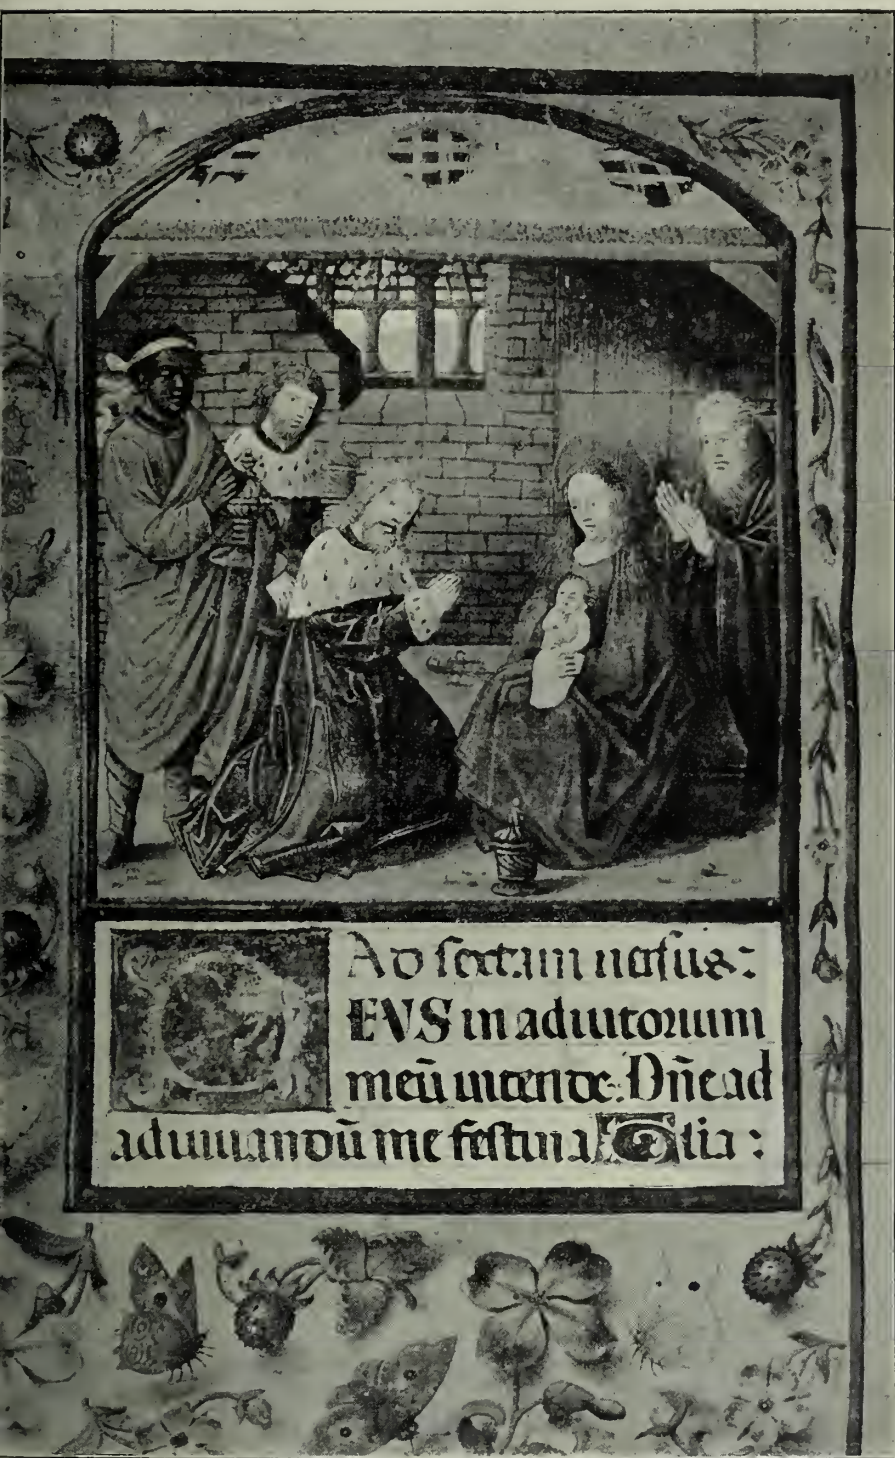 Ad sextam uersus:
DEVS in adiutorium
meū intende. Dñe ad
adiuuandū me festina Glia :